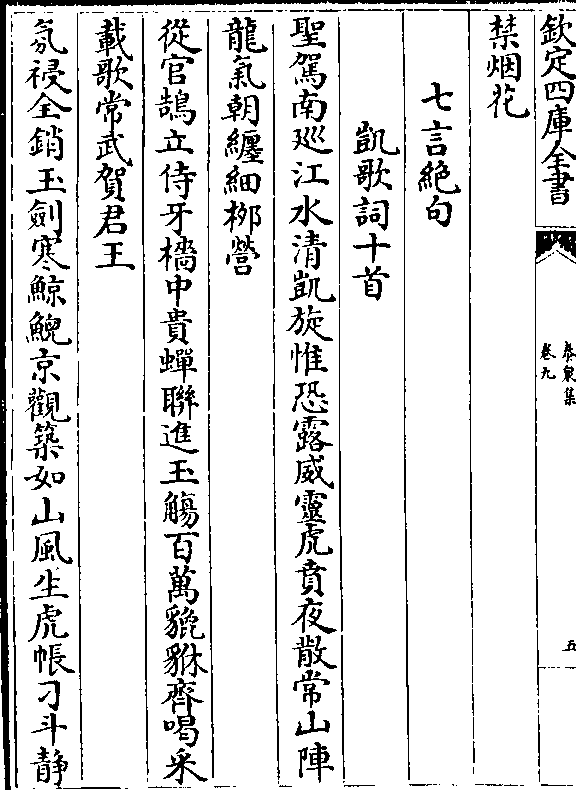 欽定四庫全書
卷九
五
禁烟花
七言絶句
凱歌詞十首
聖駕南廵江水清凱旋惟恐露威靈虎賁夜散常山陣
龍氣朝纏細栁營
從官鵠立侍牙檣中貴蟬聯進玉觴百萬貔貅齊喝采
載歌常武賀君王
氛祲全銷玉劍寒鯨鯢京觀築如山風生虎帳刁斗静